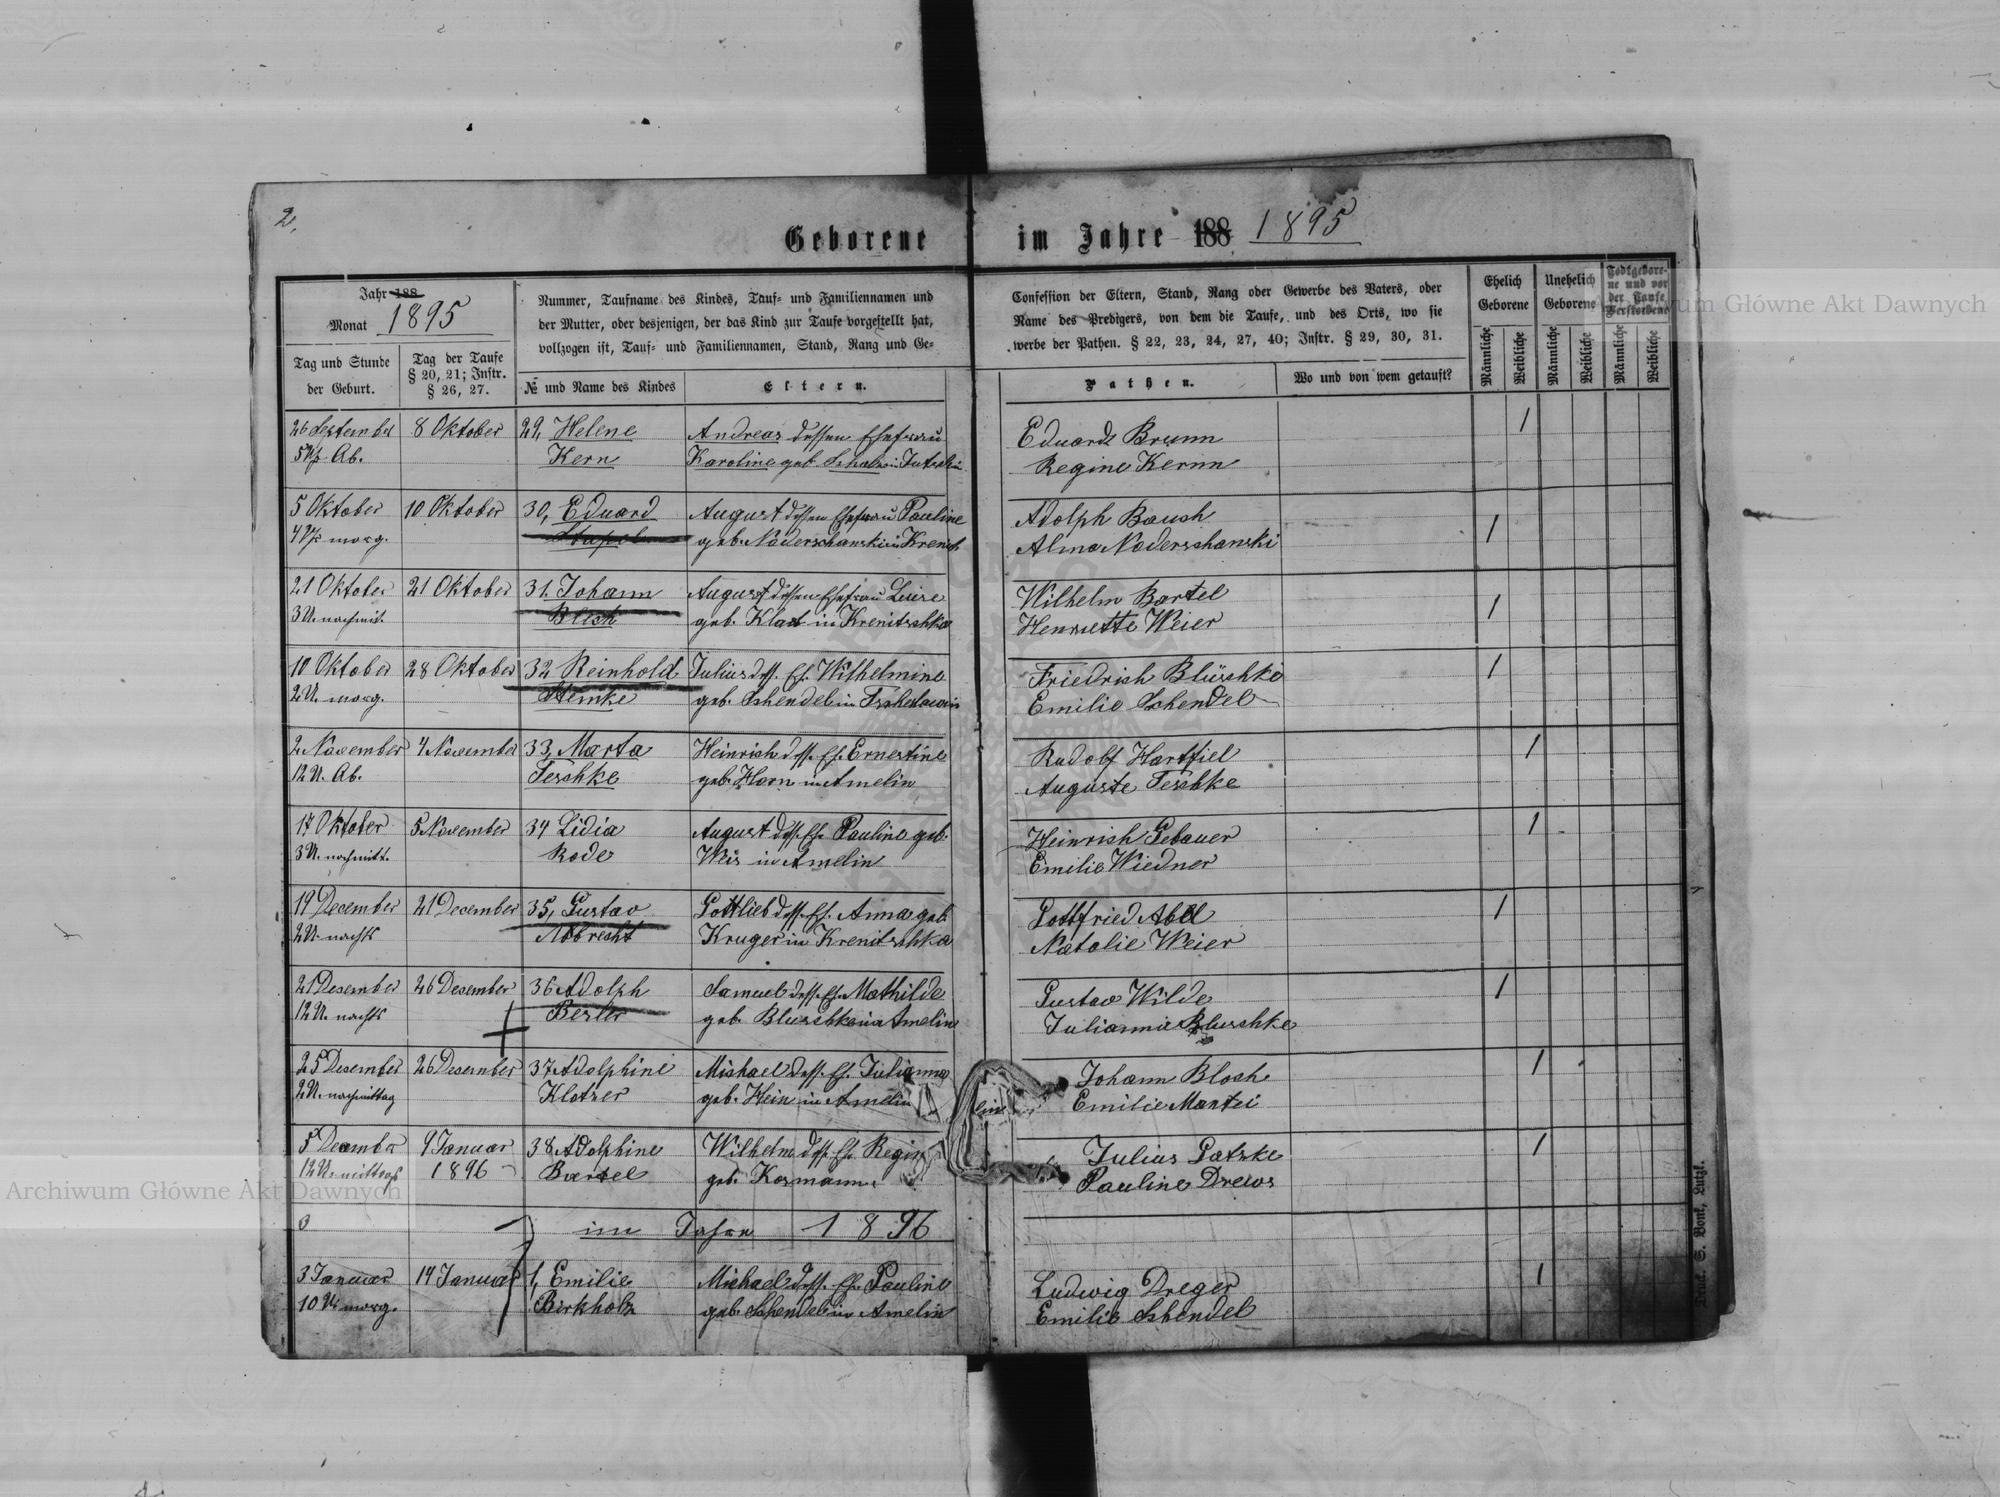 2.
Geborene im Jahre 188 1895
Jahr 188
1895
Monat
Nummer, Taufname des Kindes, Tauf- und Familiennamen und
der Mutter, oder desjenigen, der das Kind zur Taufe vorgestellt hat,
vollzogen ist, Tauf- und Familiennamen, Stand, Rang und Ge-
Confession der Eltern, Stand, Rang oder Gewerbe des Vaters, oder
Name des Predigers, von dem die Taufe, und des Orts, wo sie
werbe der Pathen. § 22, 23, 24, 27, 40; Instr. § 29, 30, 31.
Ehelich Geborene
Unehelich Geborene
Todtgebore-
ne und vor
der Taufe
Verstorbene
Tag und Stunde
der Geburt.
Tag der Taufe
§ 20, 21; Instr.
§ 26, 27.
№ und Name des Kindes
Eltern.
Pathen.
Wo und von wem getauft?
Männliche Weibliche Männliche Weibliche Männliche Weibliche
26 September 8 Oktober 29, Helene Andreas dessen Ehefrau Eduard Brunn 1
Ab. Kern Karoline geb. in Regine Kernn
5 Oktober 10 Oktober 30, Eduard August dessen Ehefrau Pauline Adolph Baush 1
morg. geb. Naderschanski in Krenitsh Alma Naderschanski
21 Oktober 21 Oktober 31. Johann August dessen Ehefrau Luise Wilhelm Bartel 1
3 U. nachmit. Blesh geb. Klat in Krenitschka Henriette Weier
10 Oktober 28 Oktober 32 Reinhold Julius dess. Eh. Wilhelmine Friedrich Blüshke 1
2 U. morg. Hemke geb. Shendel in Emilie Shendel
2 November 4 November 33, Marta Heinrich dess. Eh. Ernestine Rudolf Hartfiel 1
12 U. Ab. Teshke geb. Horn in Amelin Auguste Teshke
17 Oktober 5 November 34 Lidia August dess. Eh. Pauline geb. Heinrich Gebauer 1
3 U. nachmitt. Rode Weis in Amelin Emilie Wiedner
19 December 21 December 35, Gustav Gottlieb dess. Eh. Anna geb. Gottfried Abel 1
2 U. nachts Albresht Kruger in Krenitschka Natalie Weier
21 Desember 26 Desember 36 Adolph Samuel dess. Eh. Mathilde Gustav Wilde 1
12 U. nachts Besler geb. Blushke in Amelin Julianna Blushke
25 Desember 26 Desember 37 Adolphine Mishael dess. Eh. Julianna Johann Blosh 1
2 U. nachmittag Klotzer geb. Hein in Amelin Emilie Mantei
5 December 9 Januar 38 Adolphine Wilhelm dess. Eh. Regin Julius Patzke 1
12 U. mittags 1896 Bartel geb. Kosmann Pauline Drews
im Jahre 1896
3 Januar 14 Januar 1, Emilie Michael dess. Eh. Pauline Ludwig Dreger 1
10 U. morg. Birkholz geb. Shendel in Amelin Emilie Shendel
Druck. S. Bonk, Lutzk.
Archiwum Główne Akt Dawnych
Archiwum Główne Akt Dawnych